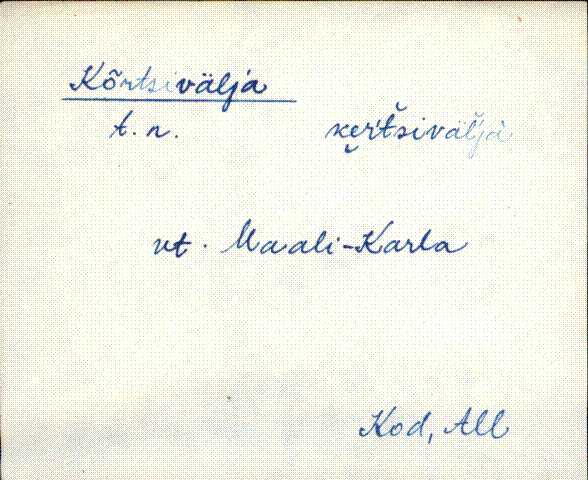 Kõrtsivälja
t. n. ke̮ŕt̆šiväĺjà
vt. Maali-Karla
Kod, All